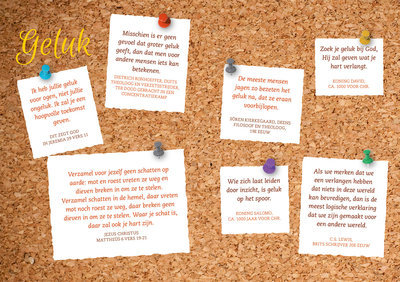 Geluk
Misschien is er geen
gevoel dat groter geluk
geeft, dan dat men voor
andere mensen iets kan
betekenen.
DIETRICH BONHOEFFER, DUITS
THEOLOOG EN VERZETSSTRIJDER,
TER DOOD GEBRACHT IN EEN
CONCENTRATIEKAMP
Zoek je geluk bij God,
Hij zal geven wat je
hart verlangt.
KONING DAVID,
CA. 1000 VOOR CHR.
Ik heb jullie geluk
voor ogen, niet jullie
ongeluk. Ik zal je een
hoopvolle toekomst
geven.
DIT ZEGT GOD
IN JEREMIA 29 VERS 11
De meeste mensen
jagen zo bezeten het
geluk na, dat ze eraan
voorbijlopen.
SÖREN KIERKEGAARD, DEENS
FILOSOOF EN THEOLOOG,
19E EEUW
Verzamel voor jezelf geen schatten op
aarde: mot en roest vreten ze weg en
dieven breken in om ze te stelen.
Verzamel schatten in de hemel, daar vreten
mot noch roest ze weg, daar breken geen
dieven in om ze te stelen. Waar je schat is,
daar zal ook je hart zijn.
JEZUS CHRISTUS
MATTHEÜS 6 VERS 19-21
Wie zich laat leiden
door inzicht, is geluk
op het spoor.
KONING SALOMO,
CA. 1000 JAAR VOOR CHR.
Als we merken dat we
een verlangen hebben
dat niets in deze wereld
kan bevredigen, dan is de
meest logische verklaring
dat we zijn gemaakt voor
een andere wereld.
C.S. LEWIS,
BRITS SCHRIJVER 20E EEUW